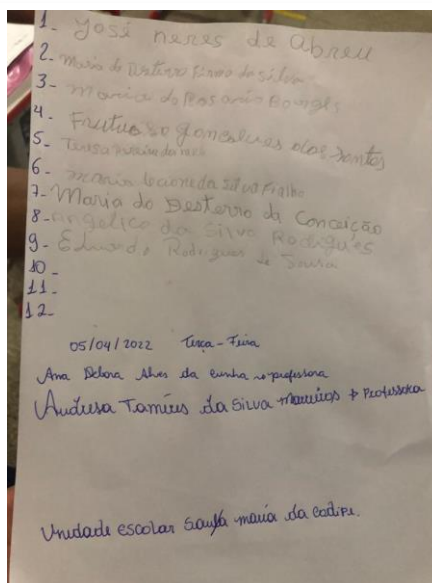 1- José neres de abreu
2- Maria do Desterro da Silva
3- Maria do Rosario Borges
4- Frutuoso gonsalves dos santos
5- Teresa
6- maria da Silva Fialho
7- Maria do Desterro da Conceição
8- angelico da Silva Rodrigues
9- Eduardo Rodrigues de Sousa
10-
11-
12-
05/04/2022 Terça-Feira
Ana Debora Alves da cunha professora
da Silva Professora
Unidade escolar Santa maria da codipi.